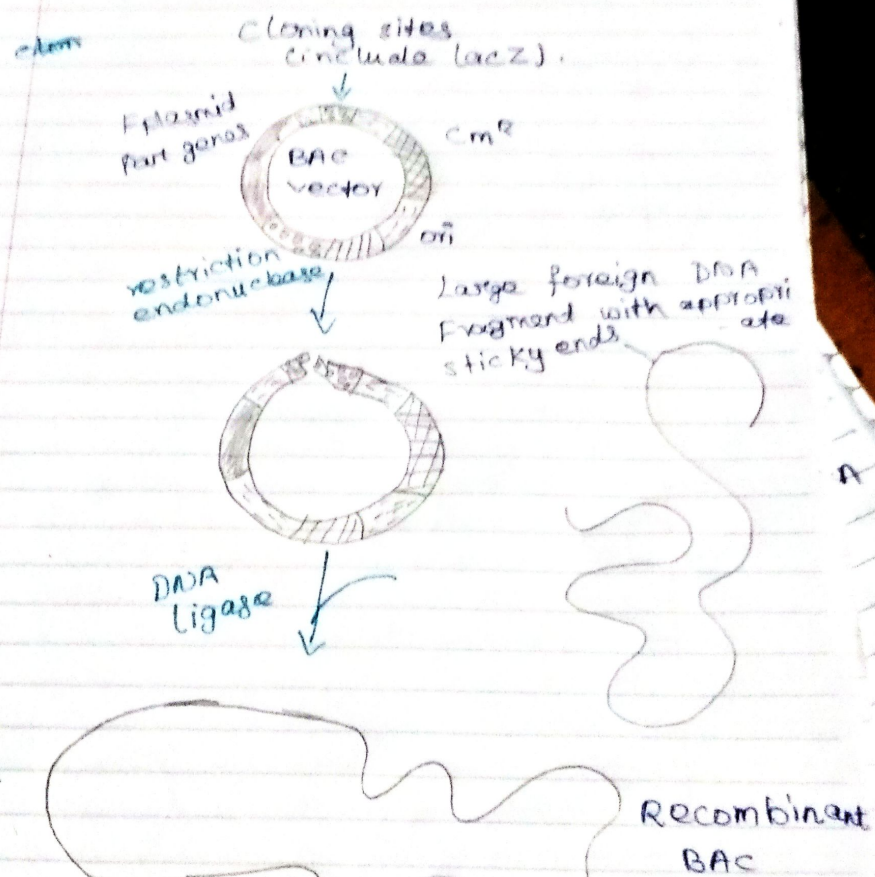 Cloning sites
(include lacZ).
F plasmid
Part genes
CmR
BAC
vector
ori
restriction
endonuclease
Large foreign DNA
Fragment with appropri
ate
sticky ends
DNA
Ligase
A
Recombinant
BAC